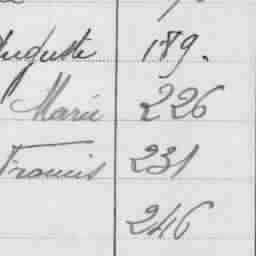 Auguste 189.
Marie 226
Francis 231
246